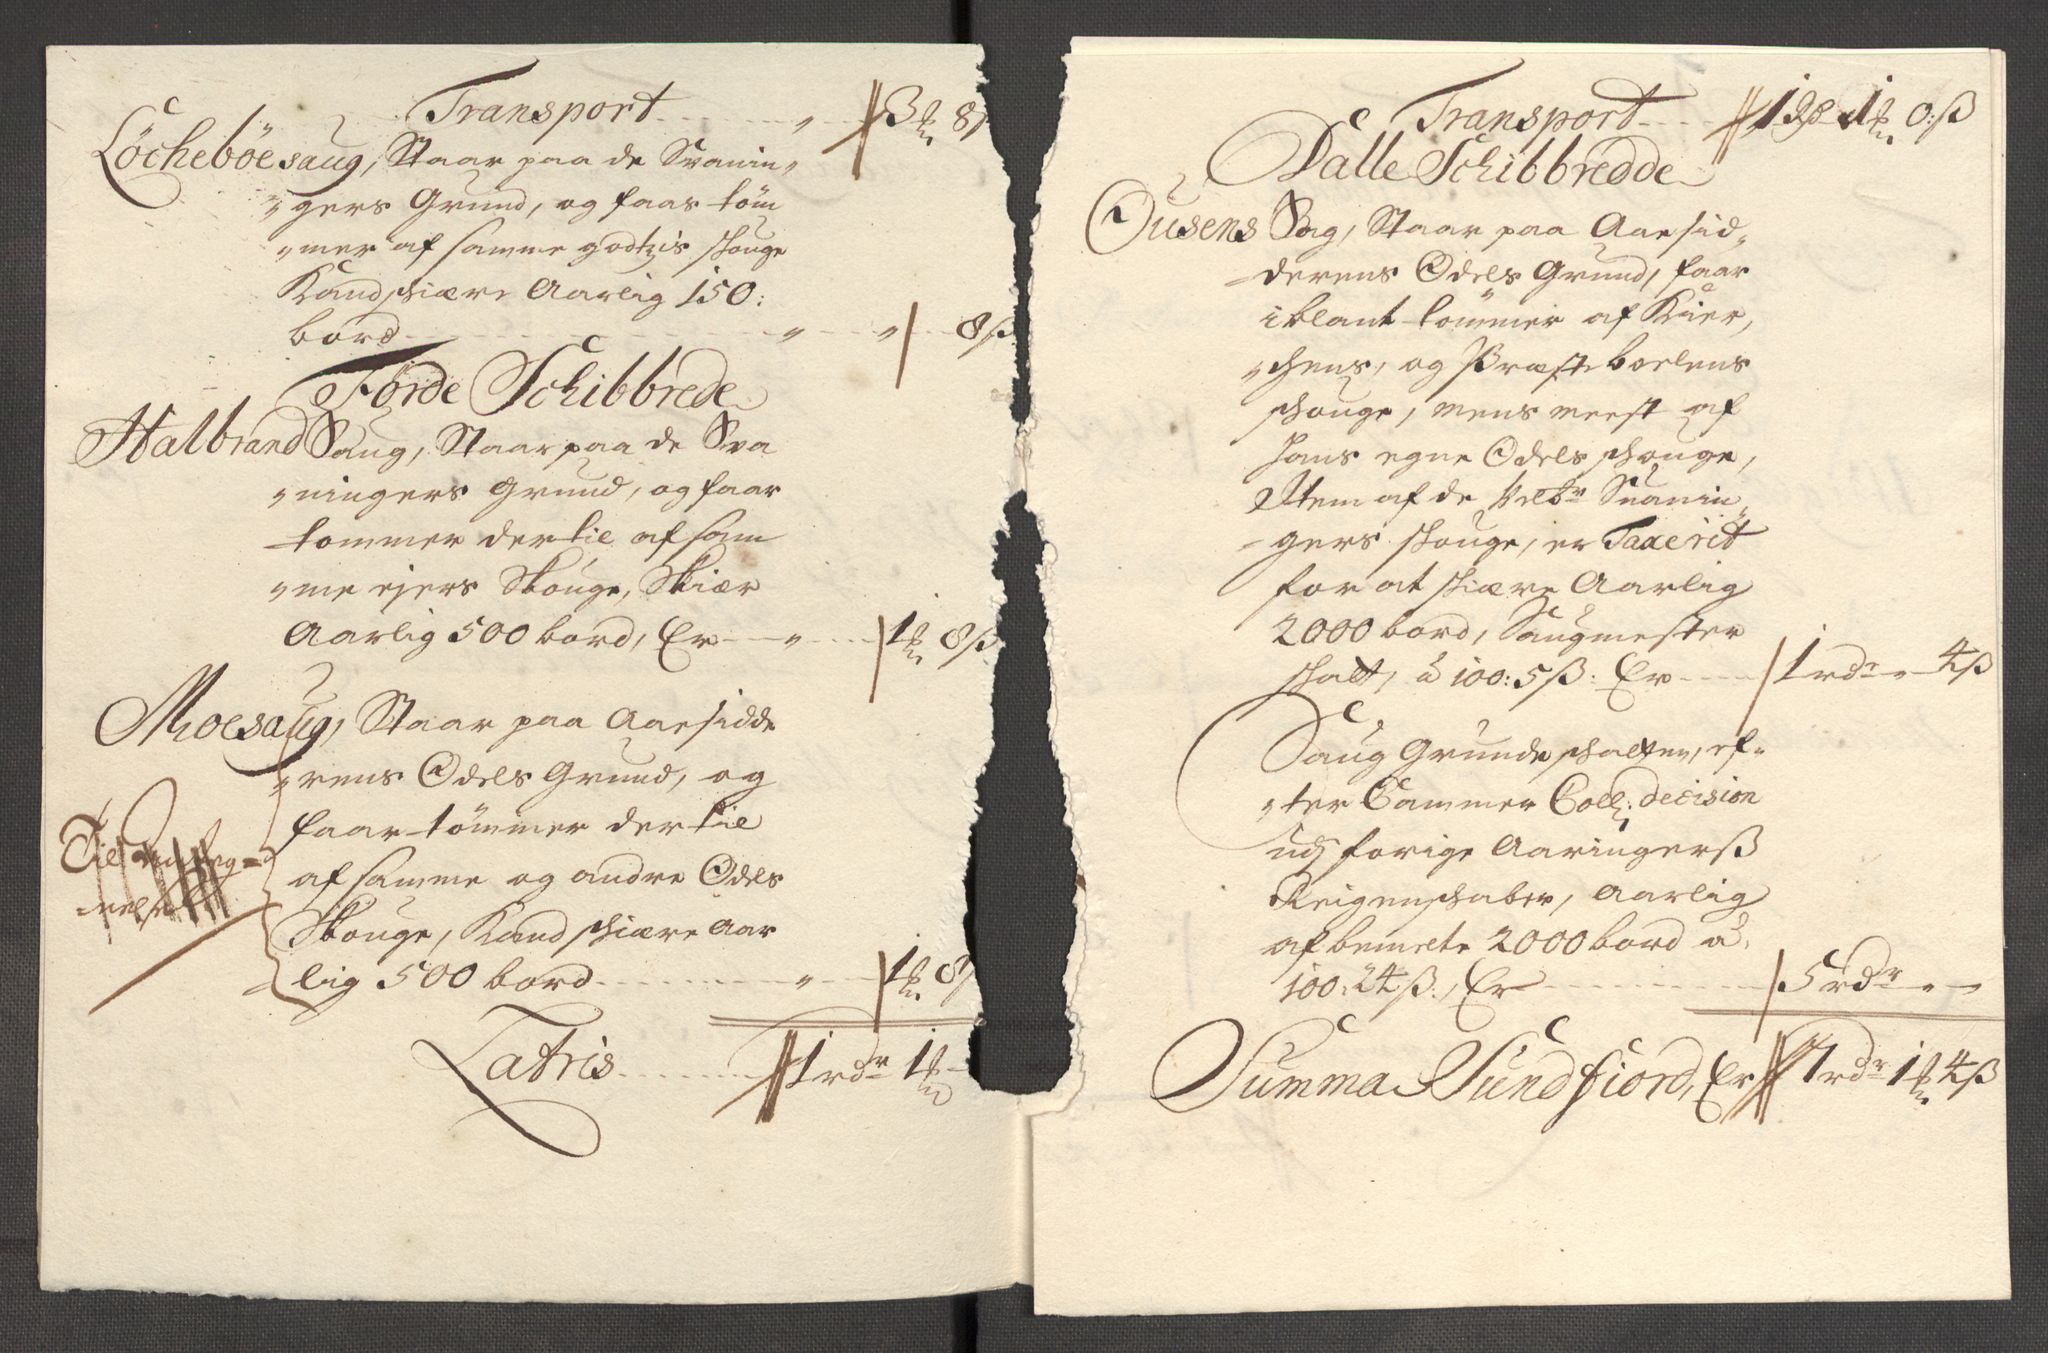 Transport 3 8
Löcheböesaug, Staar paa de Svanin„
„gers Grund, og faar töm
„mer af samme godtzis skouge
Kand skiære Aarlig 150:
bord 8ß
Förde Schibbrede
Halbrand Saug, Staar paa de Sva
„ningers Grund, og faar
tommer dertil af sam
„me ejers Skouge, Skiær
Aarlig 500 bord, Er 1 8ß
Moesaug, Staar paa Aaesidde
„rens Odels Grund, og
faar tömmer dertil
af samme og andre Odels
Skouge, Kand skiære Aar
lig 500 bord 1 8
Til
Latris 1 rdr 1
Transport 1 1 0:ß
Dalle Schibbredde
Ousens Sag, Staar paa Aaesid„
derens Odels Grund, faar
iblant tömmer af Kier„
„chens, og Præsteboelens
skouge, mens meest af
hans egne Odels skouge,
Item af de Svanin„
gers skouge, er Taxerit
for at skiære Aarlig
2000 bord, Saugmester
skatt, á 100: 5ß: Er 1 rdr 4ß
Saug Grunde skatten, ef„
„ter Cammer Coll: decision
udj forige Aaringerß
Reigenskaber, Aarlig
af bemelte 2000 bord á
100: 24ß:, Er 5 rdr
Summa Sundfiord, Er 7 rdr 1 4ß